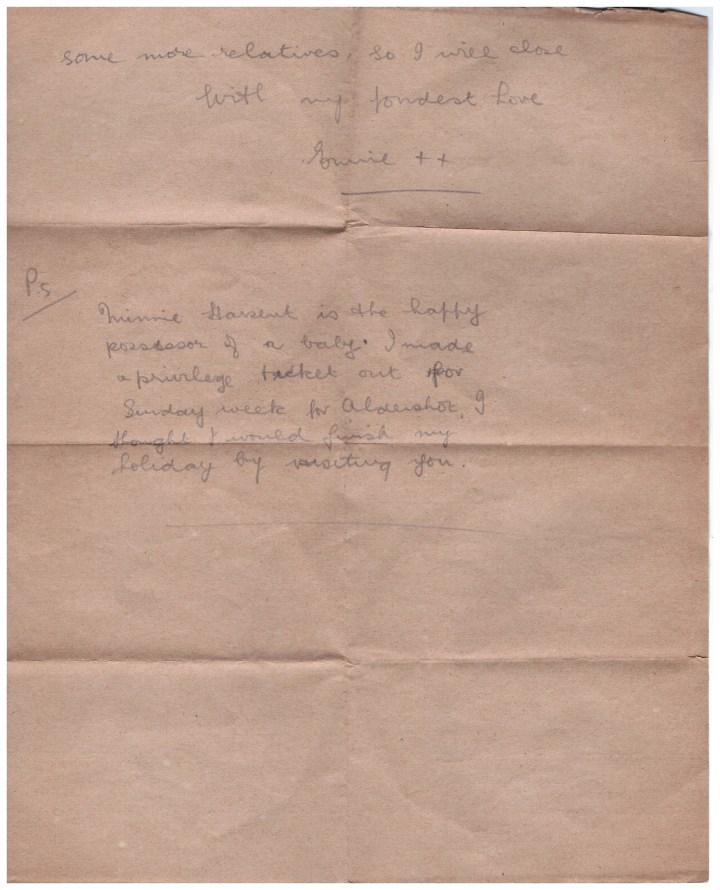 some more relatives, so I will close
With my fondest love
Ernie ++
P.s
Minnie Harsent is the happy
possessor of a baby. I made
a privilege ticket out for
Sunday week for Aldershot, I
thought I would finish my
holiday by visiting you.